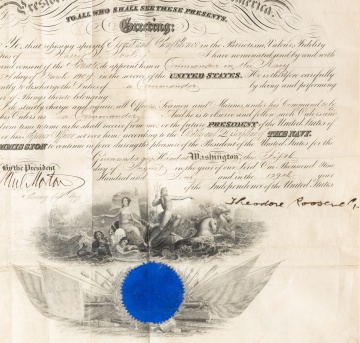 President America.
TO ALL WHO SHALL SEE THESE PRESENTS,
Greeting:
Ye, that reposing special in the Patriotism, Valor, Fidelity
I have nominated and by and with
Senate, do appoint him a Commander in the Navy
day of March 1904, in the service of the UNITED STATES. He is therefore carefully
diligently to discharge the Duties of a Commander by doing and performing
Things thereto belonging.
do strictly charge and require all Officers, Seamen and Marines under his Command to be
his Orders as a Commander And he is to observe and follow such Orders and
from time to time as he shall receive from me, or the future PRESIDENT of the United States of
according to the Rules and Discipline of THE NAVY.
COMMISSION to continue in force during the pleasure of the President of the United States for the
Given under my Hand at Washington this
By the President day of August in the year of our Lord One Thousand Nine
Paul Morton Hundred and and in the 129th year
Secretary of the Navy of the Independence of the United States
Theodore Roosevelt